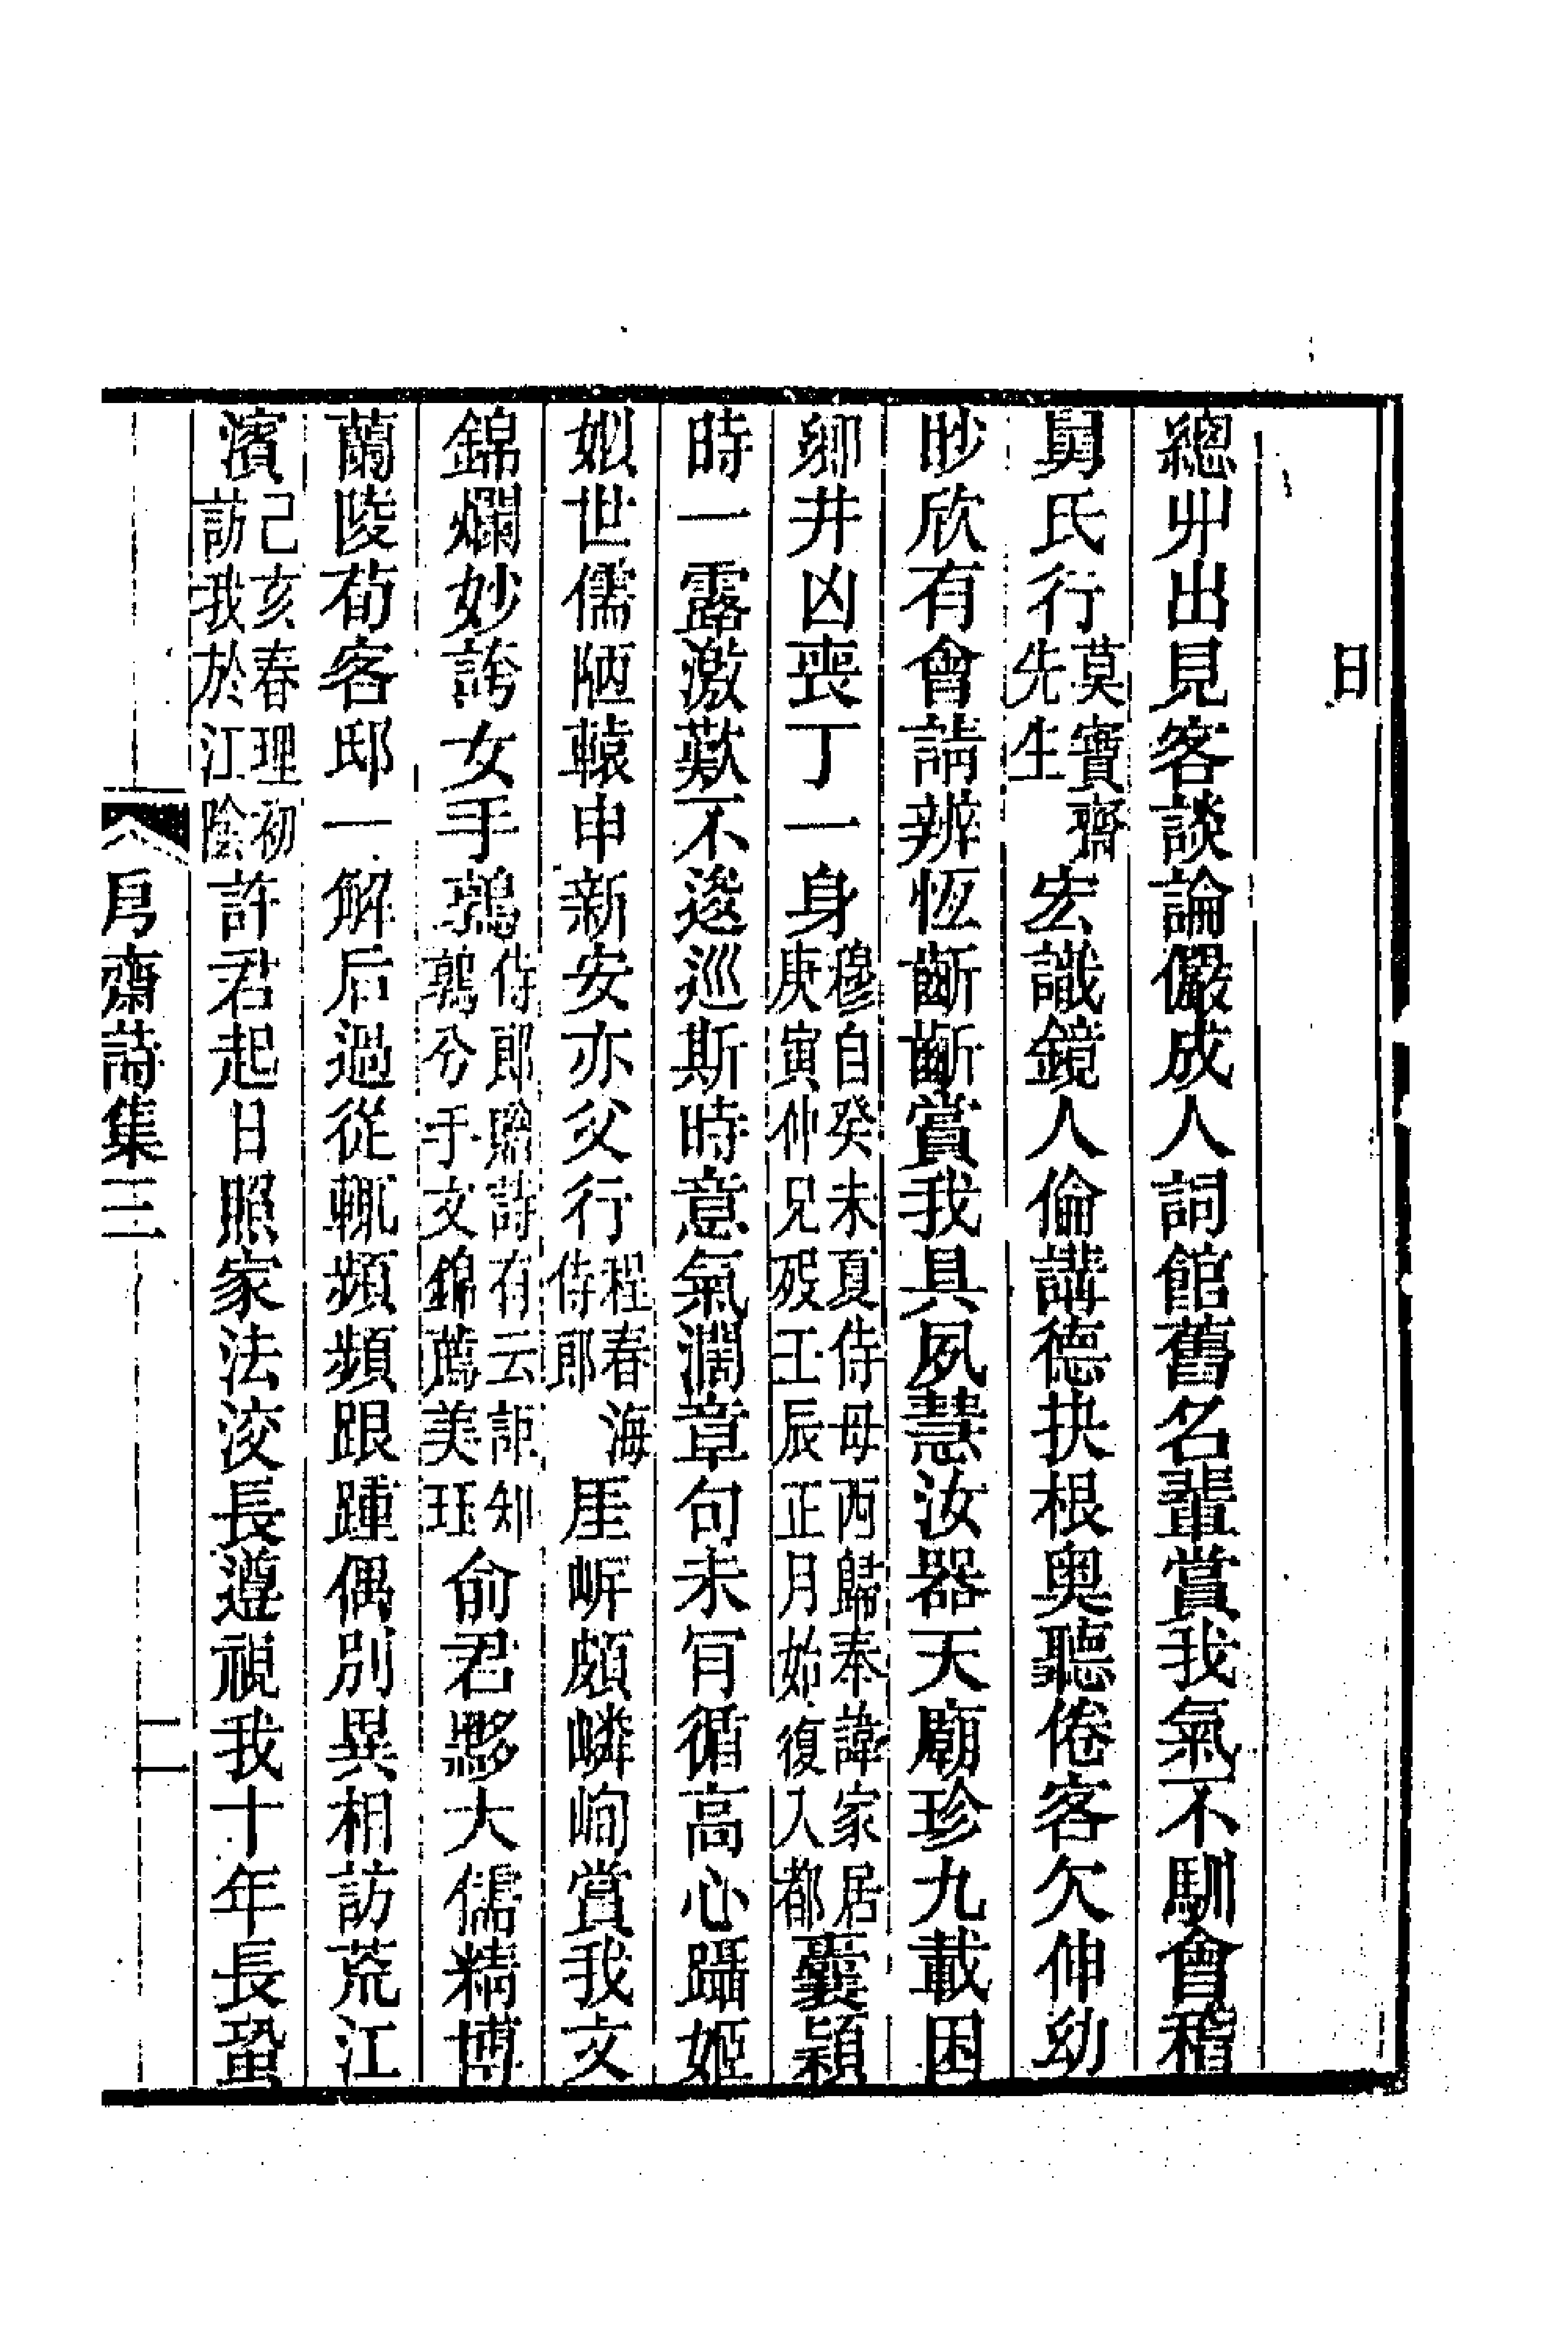 日
總丱出見客談論儼成人詞館舊名輩賞我氣不馴會稽
舅氏行莫寶齋先生宏識鏡人倫講德抉根奧聽倦客欠伸幼
眇欣有會請辨恆齗齗賞我具夙慧汝器天廟珍九載困
鄉井凶喪丁一身穆自癸未夏侍母西歸奉諱家居庚寅仲兄歿壬辰正月始復入都囊穎
時一露激歎不逡巡斯時意氣濶章句未肎循高心躡姬
姒世儒陋轅申新安亦父行程春海侍郎厓㟁頗嶙峋賞我文
錦爛妙誇女手鶉侍郎贈詩有云詎知鶉兮手文錦薦美珏俞君黟大儒精博
蘭陵荀客邸一解后過從輒頻頻跟踵偶別異相訪荒江
濱己亥春理初訪我於江陰許君起日照家法洨長遵視我十年長蛩
𠃨齋詩集三
二